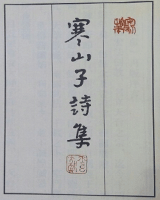 寒山子詩集